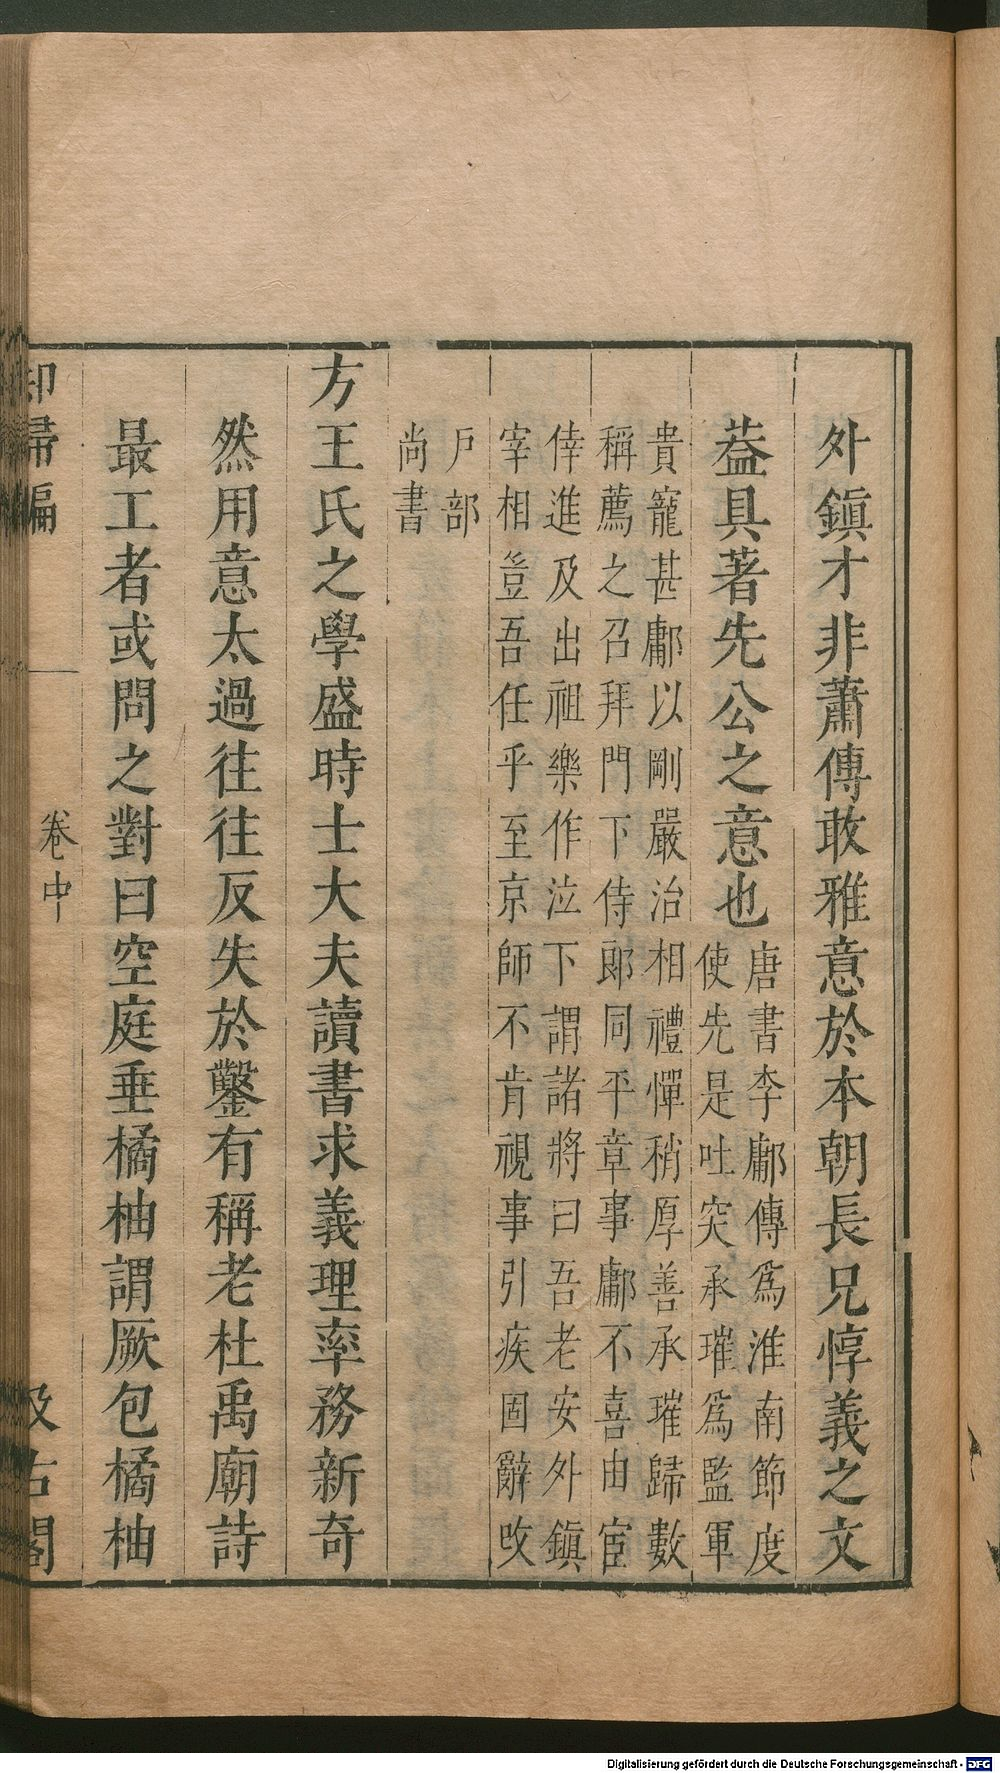 外鎮才非蕭傅敢雅意於本朝長兄惇義之文
葢具著先公之意也唐書李鄘傳爲淮南節度
使先是吐突承璀爲監軍
貴寵甚鄘以剛嚴治相禮憚稍厚善承璀歸數
稱薦之召拜門下侍郎同平章事鄘不喜由宦
倖進及出祖樂作泣下謂諸將曰吾老安外鎮
宰相豈吾任乎至京師不肯視事引疾固辭改
戶部
尚書
方王氏之學盛時士大夫讀書求義理率務新奇
然用意太過往往反失於鑿有稱老杜禹廟詩
最工者或問之對曰空庭垂橘柚謂厥包橘柚
却掃編 卷中 汲古閣
Digitalisierung gefördert durch die Deutsche Forschungsgemeinschaft - DFG